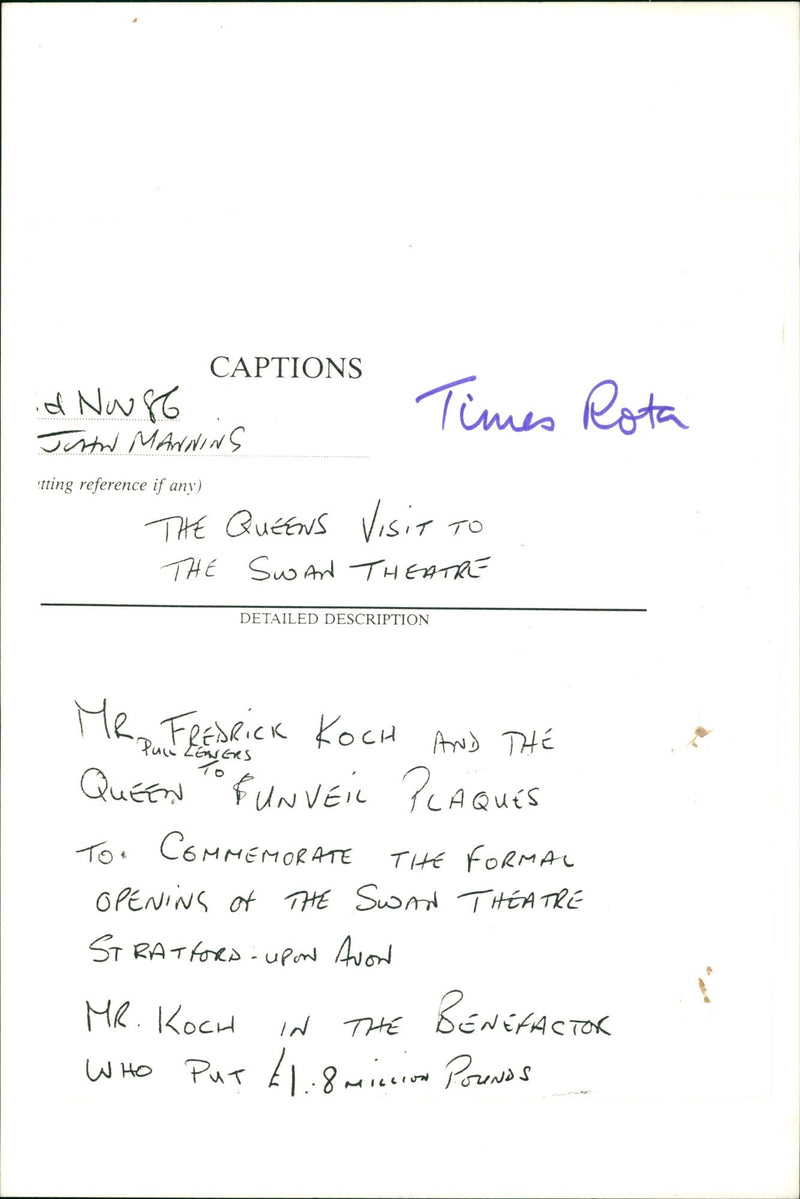 CAPTIONS
Nov 86
Times Rota
JOHN MANNING
tting reference if any)
THE QUEENS VISIT TO
THE SWAN THEATRE
DETAILED DESCRIPTION
MR. FREDRICK KOCH AND THE
PULL LEAVERS
TO
QUEEN UNVEIL PLAQUES
TO. COMMEMORATE THE FORMAL
OPENING OF THE SWAN THEATRE
STRATFORD-UPON AVON
MR. KOCH IN THE BENEFACTOR
WHO PUT £1.8 MILLION POUNDS